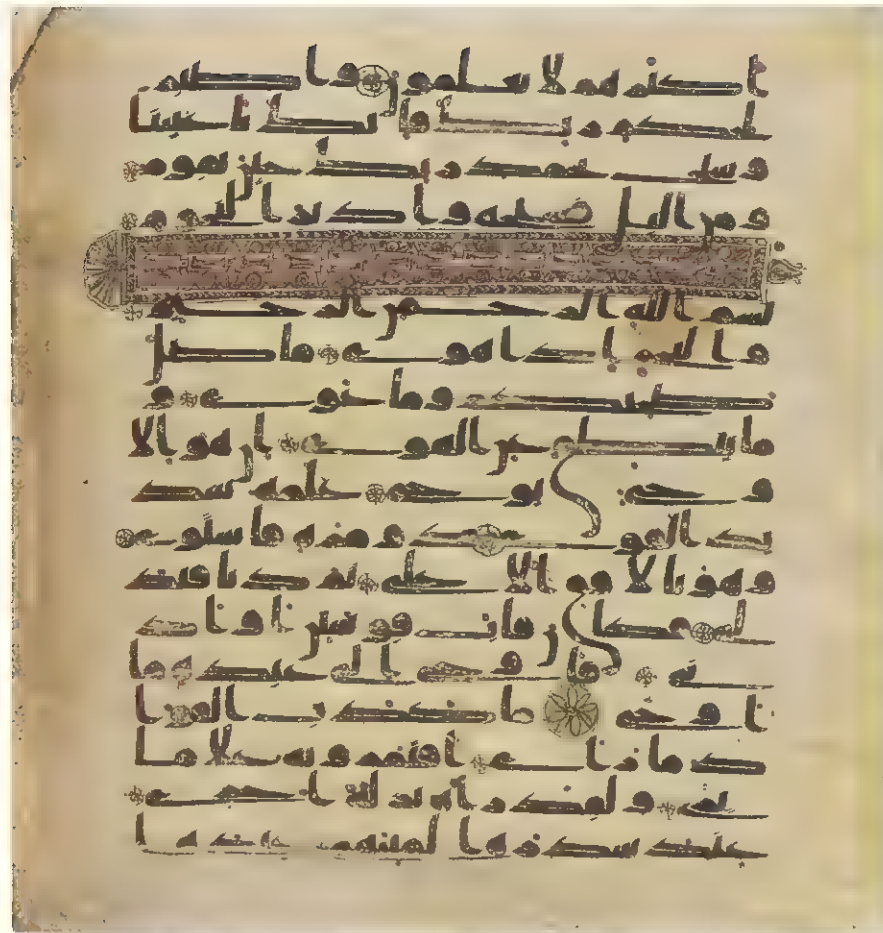 اكثرهم لا يعلمون واصبر
لحكم ربك فانك باعيننا
وسبح بحمد ربك حين تقوم
ومن اليل فسبحه وادبر النجوم
بسم الله الرحمن الرحيم
والنجم اذا هوى ما ضل
صحبكم وما غوى و
ما ينطق عن الهوى ان هو الا
وحي يوحى علمه شد
يد القوى ذو مرة فاستوى
وهو بالافق الاعلى ثم دنا فتد
لى فكان قاب قوسين او اد
نى فاوحى الى عبده ما
اوحى ما كذب الفوا
د ما راى افتمرونه على ما
يرى ولقد راه نزلة اخرى
عند سدرة المنتهى عندها